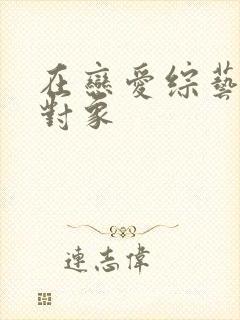 在戀愛綜藝
對象
連志偉